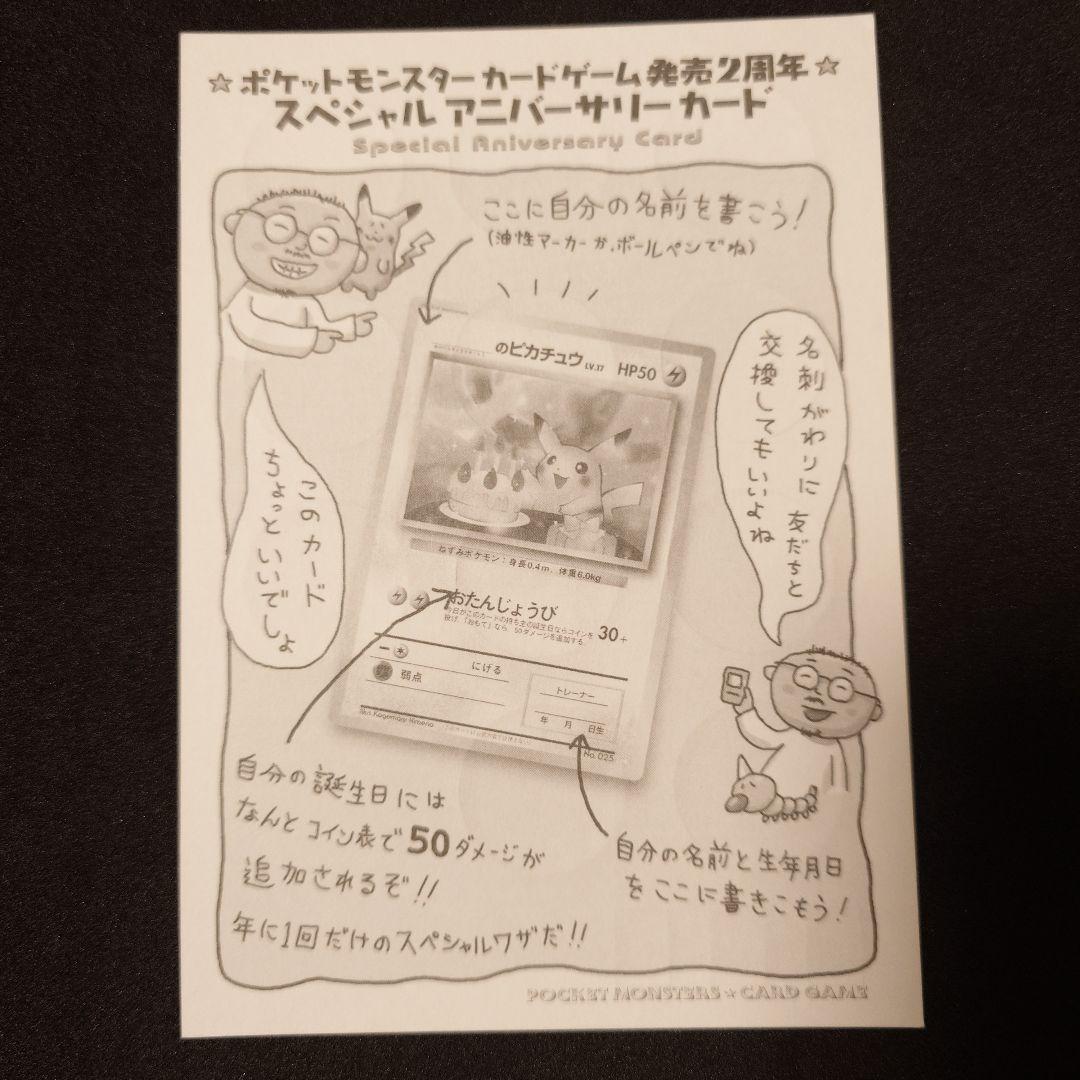 ☆ポケットモンスターカードゲーム発売2周年☆
スペシャルアニバーサリーカード
Special Aniversary Card
ここに自分の名前を書こう!
(油性マーカーか、ボールペンでね)
名刺がわりに友だちと
交換してもいいよね
このカード
ちょっといいでしょ
のピカチュウ LV.17 HP50
ねずみポケモン:身長0.4m、体重6.0kg
おたんじょうび 30+
今日がこのカードの持ち主の誕生日ならコインを
投げ、「おもて」なら、50ダメージを追加する。
にげる
弱点
トレーナー
年 月 日生
Illus. Kagemaru Himeno
No.025
自分の誕生日には
なんとコイン表で50ダメージが
追加されるぞ!!
年に1回だけのスペシャルワザだ!!
自分の名前と生年月日
をここに書きこもう!
POCKET MONSTERS★CARD GAME